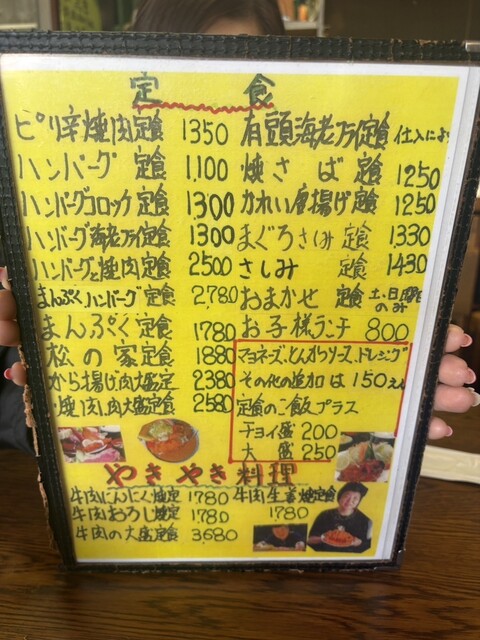 定食
ピリ辛焼肉定食 1350
ハンバーグ 定食 1,100
ハンバーグコロッケ定食 1300
ハンバーグ海老フライ定食 1300
ハンバーグと焼肉定食 2500
まんぷくハンバーグ定食 2,780
まんぷく定食 1780
松の家定食 1880
から揚げ肉大盛定 2380
焼肉、肉大盛定食 2580
有頭海老フライ定食 仕入によ
焼さば定食 1250
かれい唐揚げ定食 1250
まぐろさしみ定食 1330
さしみ 定食 1430
おまかせ 定食 土・日曜日のみ
お子様ランチ 800
マヨネーズ、とんかつソース、ドレッシング
その他の追加は150えん
定食のご飯プラス
チョイ盛 200
大盛 250
やきやき料理
牛肉にんにく焼定 1780
牛肉おろし焼定 1780
牛肉の大盛定食 3680
牛肉生姜焼定食
1780